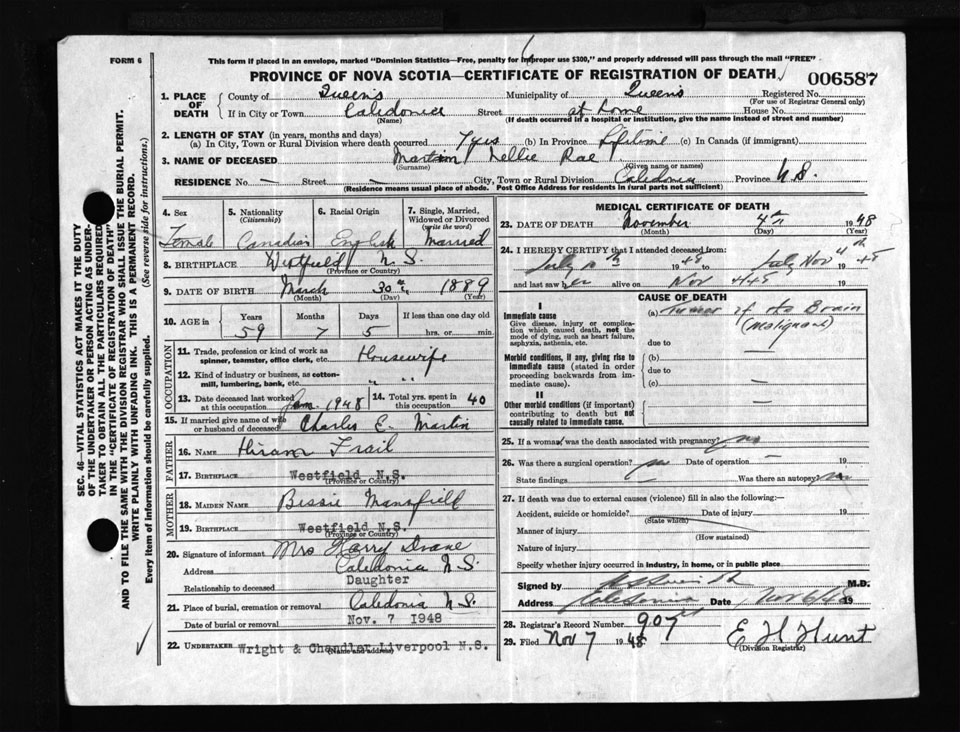 FORM 6
This form if placed in an envelope, marked "Dominion Statistics—Free, penalty for improper use $300," and properly addressed will pass through the mail "FREE"
PROVINCE OF NOVA SCOTIA—CERTIFICATE OF REGISTRATION OF DEATH
006587
1. PLACE OF DEATH
County of Queens Municipality of Queens Registered No.
(For use of Registrar General only)
If in City or Town Caledonia Street at home House No.
(Name) (If death occurred in a hospital or institution, give the name instead of street and number)
2. LENGTH OF STAY (in years, months and days)
(a) In City, Town or Rural Division where death occurred 7 yrs (b) In Province Lifetime (c) In Canada (if immigrant)
3. NAME OF DECEASED Martin Nellie Rae
(Surname) (Given name or names)
RESIDENCE No. — Street — City, Town or Rural Division Caledonia Province N.S.
(Residence means usual place of abode. Post Office Address for residents in rural parts not sufficient)
4. Sex
Female
5. Nationality
(Citizenship)
Canadian
6. Racial Origin
English
7. Single, Married, Widowed or Divorced
(write the word)
Married
8. BIRTHPLACE Westfield N.S.
(Province or Country)
9. DATE OF BIRTH March 30th 1889
(Month) (Day) (Year)
10. AGE in
Years Months Days If less than one day old
59 7 5 hrs. or min.
OCCUPATION
11. Trade, profession or kind of work as spinner, teamster, office clerk, etc. Housewife
12. Kind of industry or business, as cotton-mill, lumbering, bank, etc. " "
13. Date deceased last worked at this occupation Jan. 1948
14. Total yrs. spent in this occupation 40
15. If married give name of wife or husband of deceased Charles E. Martin
FATHER
16. Name Hiram Frail
17. Birthplace Westfield N.S.
(Province or Country)
MOTHER
18. Maiden Name Bessie Mansfield
19. Birthplace Westfield N.S.
(Province or Country)
20. Signature of informant Mrs Harry
Address Caledonia N.S.
Relationship to deceased Daughter
21. Place of burial, cremation or removal Caledonia N.S.
Date of burial or removal Nov. 7 1948
22. UNDERTAKER Wright & Chandler Liverpool N.S.
(Name and address)
MEDICAL CERTIFICATE OF DEATH
23. DATE OF DEATH November 4th 1948
(Month) (Day) (Year)
24. I HEREBY CERTIFY that I attended deceased from:
July 1948 to Nov 4th 1948
and last saw her alive on Nov 4 48 19
CAUSE OF DEATH
I
Immediate cause
Give disease, injury or complication which caused death, not the mode of dying, such as heart failure, asphyxia, asthenia, etc.
(a) Tumor of the Brain
(malignant)
due to
Morbid conditions, if any, giving rise to immediate cause (stated in order proceeding backwards from immediate cause).
(b) —
due to
(c) —
II
Other morbid conditions (if important) contributing to death but not causally related to immediate cause.
—
25. If a woman, was the death associated with pregnancy? no
26. Was there a surgical operation? no Date of operation — 19
State findings Was there an autopsy? no
27. If death was due to external causes (violence) fill in also the following:—
Accident, suicide or homicide? Date of injury 19
(State which)
Manner of injury
(How sustained)
Nature of injury
Specify whether injury occurred in industry, in home, or in public place.
Signed by M.D.
Address Caledonia Date Nov 6/48 19
28. Registrar's Record Number 907
29. Filed Nov 7 1948 E H Hunt
(Division Registrar)
SEC. 46—VITAL STATISTICS ACT MAKES IT THE DUTY
OF THE UNDERTAKER OR PERSON ACTING AS UNDER-
TAKER TO OBTAIN ALL THE PARTICULARS REQUIRED
IN THE "CERTIFICATE OF REGISTRATION OF DEATH"
AND TO FILE THE SAME WITH THE DIVISION REGISTRAR WHO SHALL ISSUE THE BURIAL PERMIT.
WRITE PLAINLY WITH UNFADING INK. THIS IS A PERMANENT RECORD.
Every item of information should be carefully supplied. (See reverse side for instructions.)